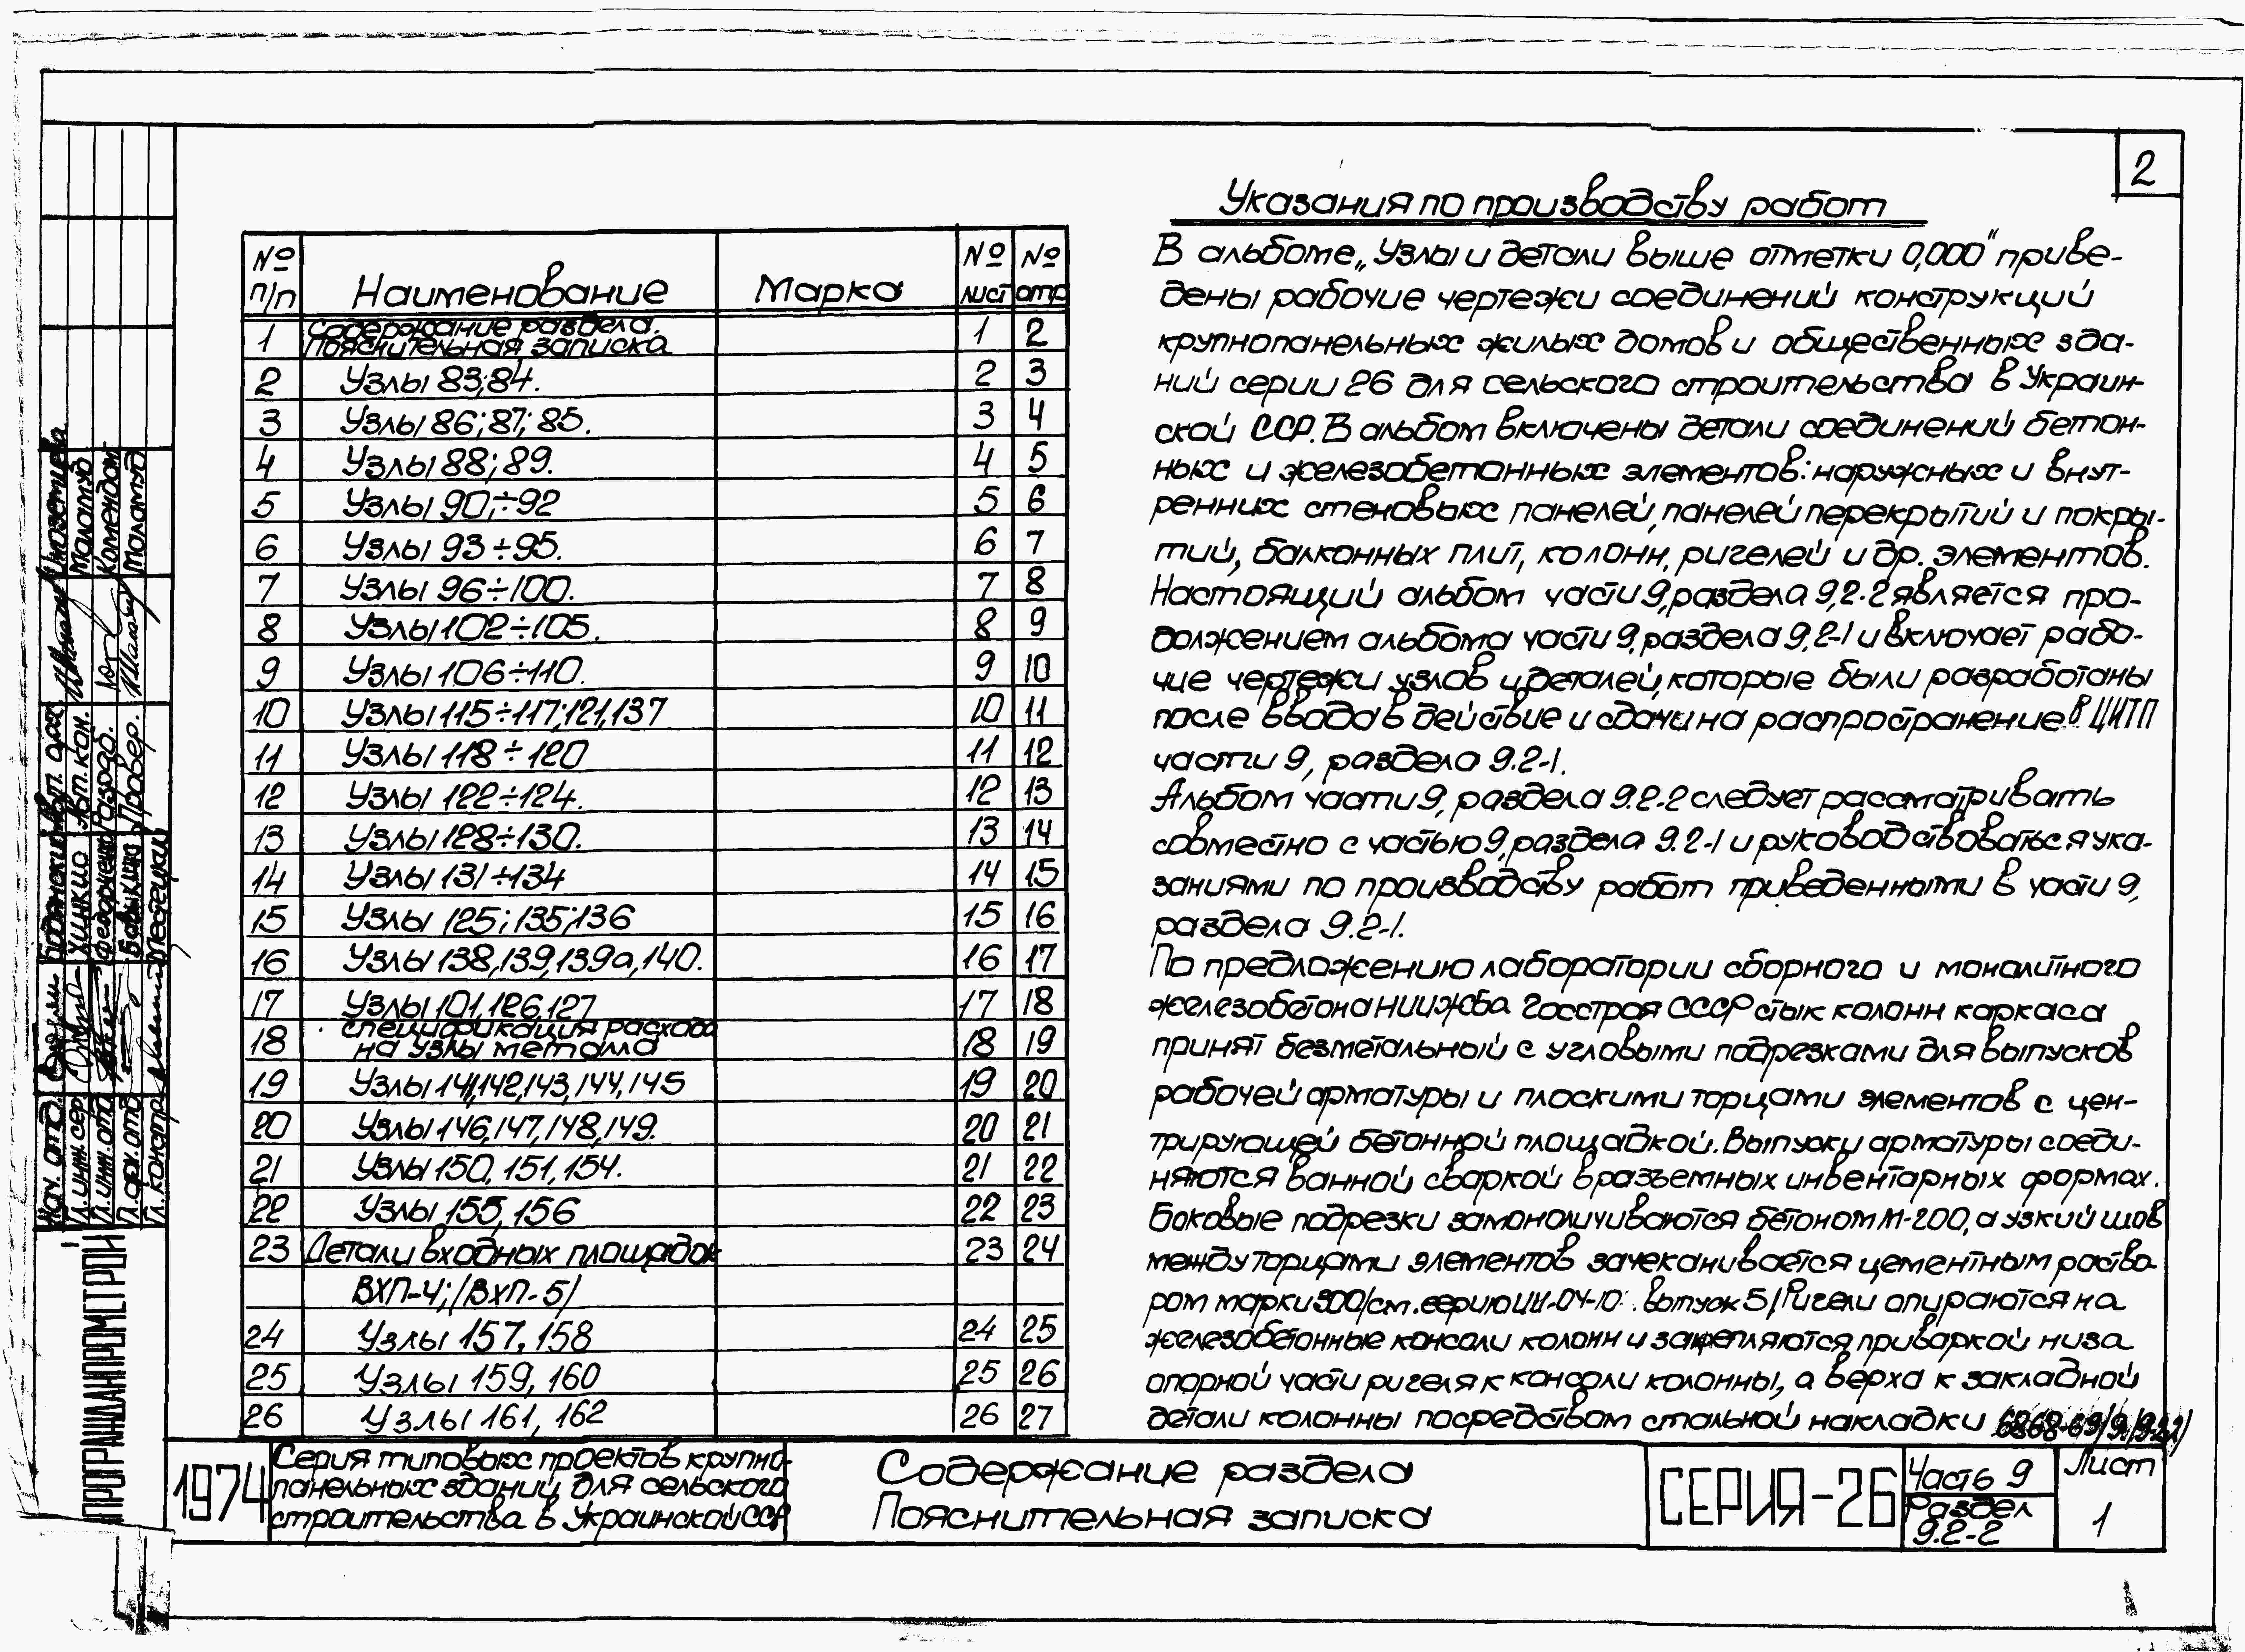 2
№ п/п Наименование Марка № лист № стр
1 Содержание раздела. Пояснительная записка 1 2
2 Узлы 83;84. 2 3
3 Узлы 86;87;85. 3 4
4 Узлы 88;89. 4 5
5 Узлы 90;÷92 5 6
6 Узлы 93÷95. 6 7
7 Узлы 96÷100. 7 8
8 Узлы 102÷105. 8 9
9 Узлы 106÷110. 9 10
10 Узлы 115÷117;121,137 10 11
11 Узлы 118÷120 11 12
12 Узлы 122÷124. 12 13
13 Узлы 128÷130. 13 14
14 Узлы 131÷134 14 15
15 Узлы 125;135;136 15 16
16 Узлы 138,139,139а,140. 16 17
17 Узлы 101,126,127 17 18
18 спецификация расхода на узлы металла 18 19
19 Узлы 141,142,143,144,145 19 20
20 Узлы 146,147,148,149. 20 21
21 Узлы 150,151,154. 21 22
22 Узлы 155,156 22 23
23 Детали входных площадок 23 24
ВХП-4;/ВХП-5/
24 Узлы 157,158 24 25
25 Узлы 159,160 25 26
26 Узлы 161,162 26 27
Указания по производству работ
В альбоме „Узлы и детали выше отметки 0,000" приве-
дены рабочие чертежи соединений конструкций
крупнопанельных жилых домов и общественных зда-
ний серии 26 для сельского строительства в Украин-
ской ССР. В альбом включены детали соединений бетон-
ных и железобетонных элементов: наружных и внут-
ренних стеновых панелей, панелей перекрытий и покры-
тий, балконных плит, колонн, ригелей и др. элементов.
Настоящий альбом части 9, раздела 9,2-2 является про-
должением альбома части 9, раздела 9,2-1 и включает рабо-
чие чертежи узлов и деталей, которые были разработаны
после ввода в действие и сдачи на распространение в ЦИТП
части 9, раздела 9.2-1.
Альбом части 9, раздела 9.2-2 следует рассматривать
совместно с частью 9, раздела 9.2-1 и руководствоваться ука-
заниями по производству работ приведенными в части 9,
раздела 9.2-1.
По предложению лаборатории сборного и монолитного
железобетона НИИЖБа Госстроя СССР стык колонн каркаса
принят безметальный с угловыми подрезками для выпусков
рабочей арматуры и плоскими торцами элементов с цен-
трирующей бетонной площадкой. Выпуски арматуры соеди-
няются ванной сваркой в разъемных инвентарных формах.
Боковые подрезки замоноличиваются бетоном М-200, а узкий шов
между торцами элементов зачеканивается цементным раство-
ром марки 300/см. серию ИИ-04-10. выпуск 5/. Ригели опираются на
железобетонные консоли колонн и закрепляются приваркой низа
опорной части ригеля к консоли колонны, а верха к закладной
детали колонны посредством стальной накладки
Нач. отд.
Гл. инж. сер. Хинкис
Гл. инж. отд Федорченко
Гл. арх. отд
Гл. констр. Местецкий
Авт. арх.
Авт. кон. Маламуд
Разраб. Комендант
Провер. Маламуд
УКРНИИПГРАЖДАНПРОМСТРОЙ
1974
Серия типовых проектов крупно-
панельных зданий для сельского
строительства в Украинской ССР
Содержание раздела
Пояснительная записка
СЕРИЯ-26
Часть 9
Раздел
9.2-2
Лист
1